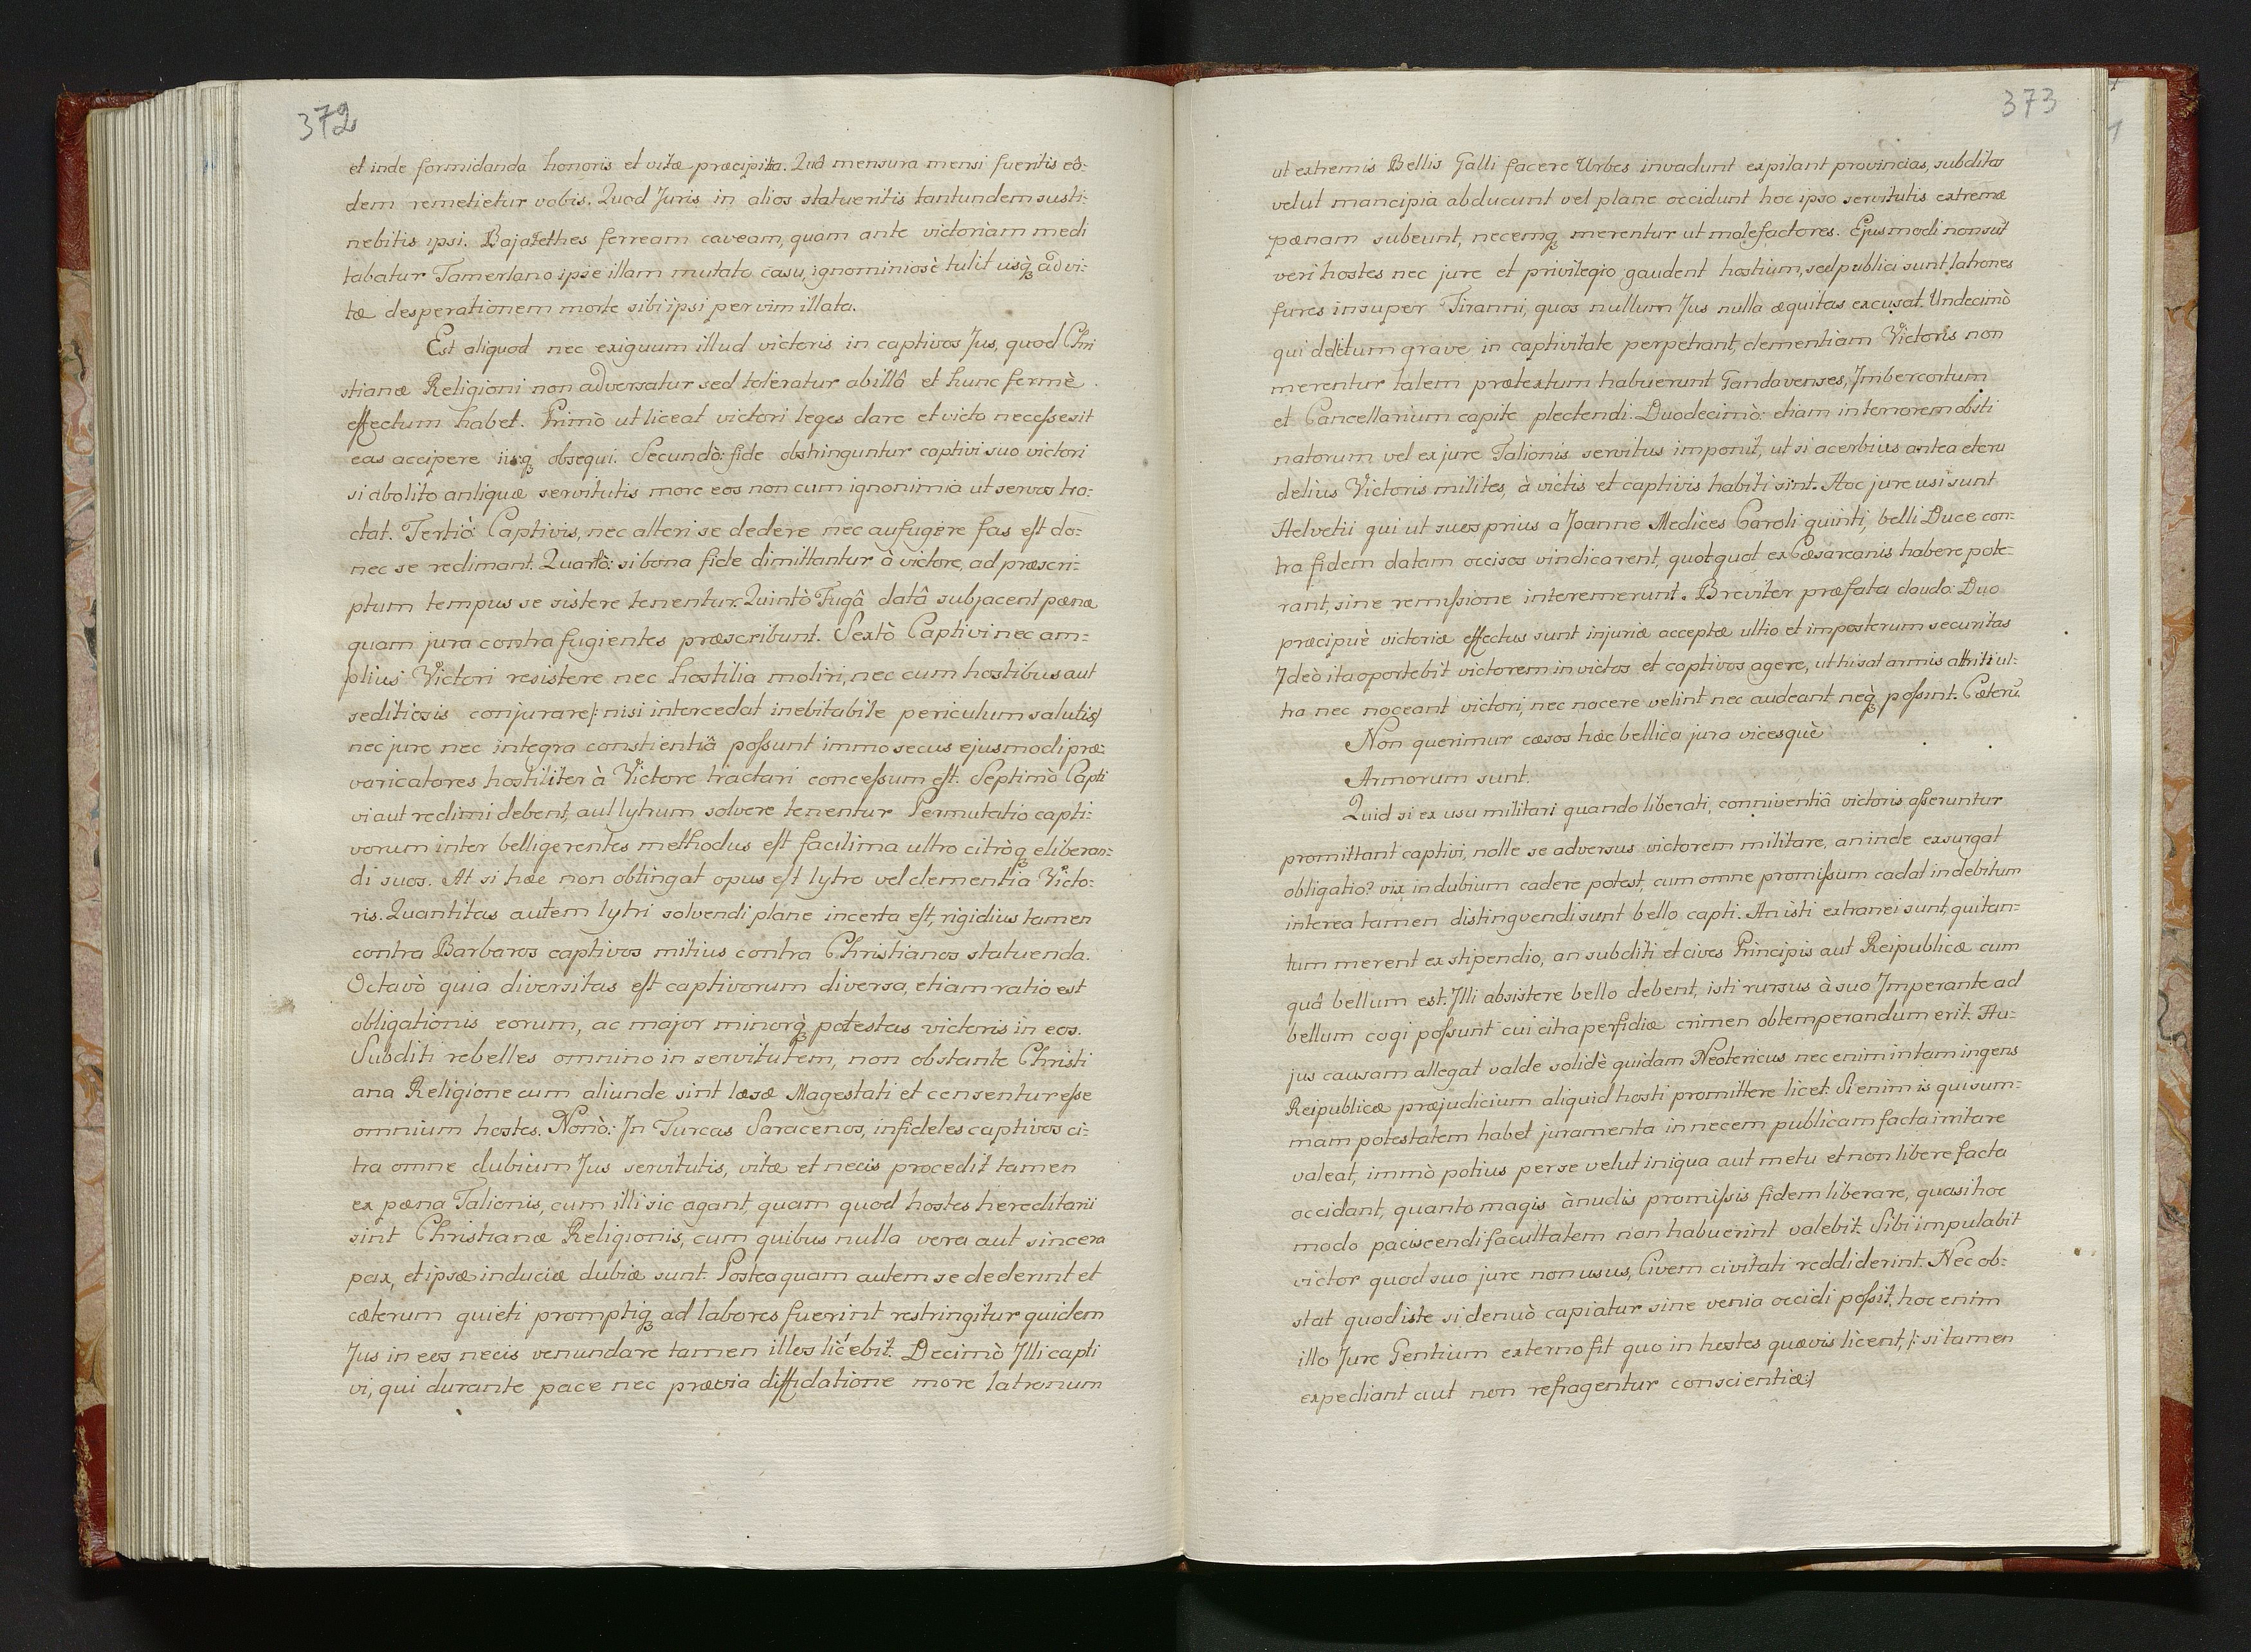 372
et inde formidanda honoris et vitæ præcipitia. Quâ mensura mensi fueritis eâ:
dem remetietur vobis. Quod Juris in alios statueritis tantundem susti:
nebitis ipsi. Bajatethes ferream caveam, quam ante victoriam medi
tabatur Tamerlano ipse illam mutato casu, ignominiosè tulit usq́ꝫ ad vi:
tæ desperationem morte sibi ipsi per vim illata.
Est aliquod nec exiguum illud victoris in captivos Jus, quod Chri
stianæ Religioni non adversatur sed toleratur ab illâ et hunc fermè
effectum habet. Primò ut liceat victori leges dare et victo necesse sit
eas accipere iisqꝫ obsequi. Secundò: fide obstringuntur captivi suo victori
si abolito antiquæ servitutis more eos non cum ignonimia ut servos tra:
ctat. Tertiò Captivis, nec alteri se dedere nec aufugere fas est do:
nec se redimant. Quartò: si bona fide dimittantur à victore, ad præscri:
ptum tempus se sistere tenentur. Quintò Fugâ datâ subjacent pænæ
quam jura contra fugientes præscribunt. Sextò Captivi nec am:
plius Victori resistere nec hostilia moliri, nec cum hostibus aut
seditiosis conjurare /: nisi intercedat inebitabile periculum salutis/
nec jure nec integra constientiâ possunt immo secus ejusmodi præ:
varicatores hostiliter à Victore tractari concessum est. Septimò Capti
vi aut redimi debent, aut lytrum solvere tenentur Permutatio capti:
vorum inter belligerentes methodus est facilima ultro citròqꝫ eliberan:
di suos. At si hæc non obtingat opus est lytro vel clementia Victo:
ris. Quantitas autem lytri solvendi plane incerta est, rigidius tamen
contra Barbaros captivos mitius contra Christianos statuenda.
Octavò quia diversitas est captivorum diversa, etiam ratio est
obligationis eorum, ac major minorq́ꝫ potestas victoris in eos.
Subditi rebelles omnino in servitutem, non obstante Christi
ana Religione cum aliunde sint læsæ Magestati et censentur esse
omnium hostes. Nonò: In Turcas Saracenos, infideles captivos ci:
tra omne dubium Jus servitutis, vitæ et necis procedit tamen
ex pæna Talionis, cum illi sic agant, quam quod hostes hereditarii
sint Christianæ Religionis, cum quibus nulla vera aut sincera
pax, et ipsæ induciæ dubiæ sunt. Postea quam autem se dederint et
cæterum quieti promptiqꝫ ad labores fuerint restringitur quidem
Jus in eos necis venundare tamen illos licebit. Decimò Illi capti
vi, qui durante pace nec prævia diffidatione more latronum
373
ut extremis Bellis Galli facere Urbes invadunt expilant provincias, subditos
velut mancipia abducunt vel plane occidunt hoc ipso servitutis extremæ
pænam subeunt, necemqꝫ merentur ut malefactores. Ejusmodi non sūt
veri hostes nec jure et privilegio gaudent hostium, sed publici sunt latrones
fures insuper Tiranni, quos nullum Jus nulla æquitas excusat. Undecimò
qui delictum grave in captivitate perpetrant, clementiam Victoris non
merentur talem prætextum habuerunt Gandavenses, Imbercortum
et Cancellarium capite plectendi. Duodecimò: etiam in terrorem obsti
natorum vel ex jure Talionis servitus imponit, ut si acerbius antea et cru
deliùs Victoris milites, à victis et captivis habiti sint. Hoc jure usi sunt
Helvetii qui ut suos prius a Joanne Medices Caroli quinti, belli Duce con:
tra fidem datam occisos vindicarent, quotquot ex Cæsareanis habere pote:
rant, sine remissione interemerunt. Breviter præfata claudo: Duo
præcipuè victoriæ effectus sunt injuriæ acceptæ ultio et imposterum securitas
Ideò ita oportebit victorem in victos et captivos agere, ut hi sat armis attriti ul:
tra nec noceant victori, nec nocere velint nec audeant neq́ꝫ possint. Cæterū
Non querimur cæsos hæc bellica jura vicesquè
Armorum sunt.
Quid si ex usu militari quando liberati, conniventiâ victoris asseruntur
promittant captivi, nolle se adversus victorem militare, an inde exsurgat
obligatio? vix in dubium cadere potest, cum omne promissum cadat in debitum
interea tamen distinguendi sunt bello capti. An isti extranei sunt, qui tan:
tum merent ex stipendio, an subditi et cives Principis aut Reipublicæ cum
quâ bellum est. Illi absistere bello debent, isti rursus à suo Imperante ad
bellum cogi possunt cui citra perfidiæ crimen obtemperandum erit. Hu:
jus causam allegat valde solidè quidam Neotericus nec enim in tam ingens
Reipublicæ præjudicium aliquid hosti promittere licet. Si enim is qui sum:
mam potestatem habet juramenta in necem publicam facta irritare
valeat, immò potius per se velut iniqua aut metu et non libere facta
occidant, quanto magis à nudis promissis fidem liberare, quasi hoc
modo paciscendi facultatem non habuerint valebit. Sibi imputabit
victor quod suo jure non usus, Civem civitati reddiderint. Nec ob:
stat quod iste si denuò capiatur sine venia occidi possit, hoc enim
illo Jure Gentium externo fit quo in hostes quævis licent, /: si tamen
expediant aut non refragentur conscientiæ:/